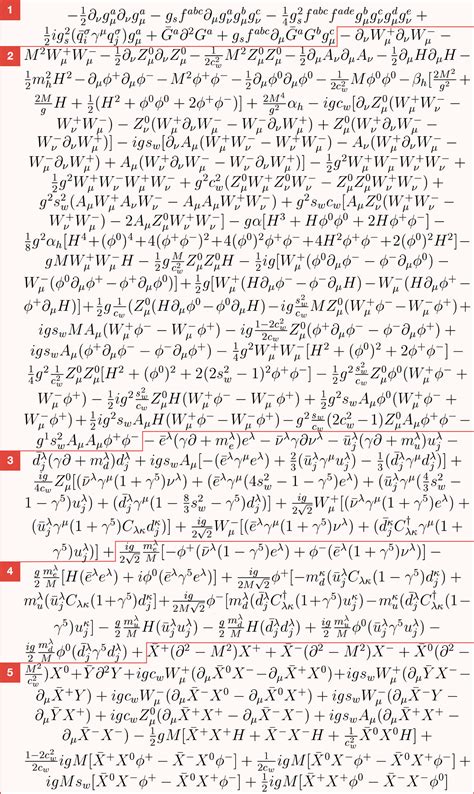 1 $-\frac{1}{2}\partial_\nu g^a_\mu \partial_\nu g^a_\mu - g_s f^{abc}\partial_\mu g^a_\nu g^b_\mu g^c_\nu - \frac{1}{4}g^2_s f^{abc}f^{ade}g^b_\mu g^c_\nu g^d_\mu g^e_\nu +$
$\frac{1}{2}ig^2_s(\bar{q}^\sigma_i\gamma^\mu q^\sigma_j)g^a_\mu + \bar{G}^a\partial^2 G^a + g_s f^{abc}\partial_\mu \bar{G}^a G^b g^c_\mu - \partial_\nu W^+_\mu \partial_\nu W^-_\mu -$
2 $M^2 W^+_\mu W^-_\mu - \frac{1}{2}\partial_\nu Z^0_\mu \partial_\nu Z^0_\mu - \frac{1}{2c^2_w}M^2 Z^0_\mu Z^0_\mu - \frac{1}{2}\partial_\mu A_\nu \partial_\mu A_\nu - \frac{1}{2}\partial_\mu H\partial_\mu H -$
$\frac{1}{2}m^2_h H^2 - \partial_\mu\phi^+\partial_\mu\phi^- - M^2\phi^+\phi^- - \frac{1}{2}\partial_\mu\phi^0\partial_\mu\phi^0 - \frac{1}{2c^2_w}M\phi^0\phi^0 - \beta_h[\frac{2M^2}{g^2} +$
$\frac{2M}{g}H + \frac{1}{2}(H^2 + \phi^0\phi^0 + 2\phi^+\phi^-)] + \frac{2M^4}{g^2}\alpha_h - igc_w[\partial_\nu Z^0_\mu(W^+_\mu W^-_\nu -$
$W^+_\nu W^-_\mu) - Z^0_\nu(W^+_\mu\partial_\nu W^-_\mu - W^-_\mu\partial_\nu W^+_\mu) + Z^0_\mu(W^+_\nu\partial_\nu W^-_\mu -$
$W^-_\nu\partial_\nu W^+_\mu)] - igs_w[\partial_\nu A_\mu(W^+_\mu W^-_\nu - W^+_\nu W^-_\mu) - A_\nu(W^+_\mu\partial_\nu W^-_\mu -$
$W^-_\mu\partial_\nu W^+_\mu) + A_\mu(W^+_\nu\partial_\nu W^-_\mu - W^-_\nu\partial_\nu W^+_\mu)] - \frac{1}{2}g^2 W^+_\mu W^-_\mu W^+_\nu W^-_\nu +$
$\frac{1}{2}g^2 W^+_\mu W^-_\nu W^+_\mu W^-_\nu + g^2c^2_w(Z^0_\mu W^+_\mu Z^0_\nu W^-_\nu - Z^0_\mu Z^0_\mu W^+_\nu W^-_\nu) +$
$g^2s^2_w(A_\mu W^+_\mu A_\nu W^-_\nu - A_\mu A_\mu W^+_\nu W^-_\nu) + g^2 s_w c_w[A_\mu Z^0_\nu(W^+_\mu W^-_\nu -$
$W^+_\nu W^-_\mu) - 2A_\mu Z^0_\mu W^+_\nu W^-_\nu] - g\alpha[H^3 + H\phi^0\phi^0 + 2H\phi^+\phi^-] -$
$\frac{1}{8}g^2\alpha_h[H^4 + (\phi^0)^4 + 4(\phi^+\phi^-)^2 + 4(\phi^0)^2\phi^+\phi^- + 4H^2\phi^+\phi^- + 2(\phi^0)^2H^2] -$
$gMW^+_\mu W^-_\mu H - \frac{1}{2}g\frac{M}{c^2_w}Z^0_\mu Z^0_\mu H - \frac{1}{2}ig[W^+_\mu(\phi^0\partial_\mu\phi^- - \phi^-\partial_\mu\phi^0) -$
$W^-_\mu(\phi^0\partial_\mu\phi^+ - \phi^+\partial_\mu\phi^0)] + \frac{1}{2}g[W^+_\mu(H\partial_\mu\phi^- - \phi^-\partial_\mu H) - W^-_\mu(H\partial_\mu\phi^+ -$
$\phi^+\partial_\mu H)] + \frac{1}{2}g\frac{1}{c_w}(Z^0_\mu(H\partial_\mu\phi^0 - \phi^0\partial_\mu H) - ig\frac{s^2_w}{c_w}MZ^0_\mu(W^+_\mu\phi^- - W^-_\mu\phi^+) +$
$igs_wMA_\mu(W^+_\mu\phi^- - W^-_\mu\phi^+) - ig\frac{1-2c^2_w}{2c_w}Z^0_\mu(\phi^+\partial_\mu\phi^- - \phi^-\partial_\mu\phi^+) +$
$igs_wA_\mu(\phi^+\partial_\mu\phi^- - \phi^-\partial_\mu\phi^+) - \frac{1}{4}g^2W^+_\mu W^-_\mu[H^2 + (\phi^0)^2 + 2\phi^+\phi^-] -$
$\frac{1}{4}g^2\frac{1}{c^2_w}Z^0_\mu Z^0_\mu[H^2 + (\phi^0)^2 + 2(2s^2_w - 1)^2\phi^+\phi^-] - \frac{1}{2}g^2\frac{s^2_w}{c_w}Z^0_\mu\phi^0(W^+_\mu\phi^- +$
$W^-_\mu\phi^+) - \frac{1}{2}ig^2\frac{s^2_w}{c_w}Z^0_\mu H(W^+_\mu\phi^- - W^-_\mu\phi^+) + \frac{1}{2}g^2s_wA_\mu\phi^0(W^+_\mu\phi^- +$
$W^-_\mu\phi^+) + \frac{1}{2}ig^2s_wA_\mu H(W^+_\mu\phi^- - W^-_\mu\phi^+) - g^2\frac{s_w}{c_w}(2c^2_w - 1)Z^0_\mu A_\mu\phi^+\phi^- -$
$g^1s^2_wA_\mu A_\mu\phi^+\phi^- - \bar{e}^\lambda(\gamma\partial + m^\lambda_e)e^\lambda - \bar{\nu}^\lambda\gamma\partial\nu^\lambda - \bar{u}^\lambda_j(\gamma\partial + m^\lambda_u)u^\lambda_j -$
3 $\bar{d}^\lambda_j(\gamma\partial + m^\lambda_d)d^\lambda_j + igs_wA_\mu[-(\bar{e}^\lambda\gamma^\mu e^\lambda) + \frac{2}{3}(\bar{u}^\lambda_j\gamma^\mu u^\lambda_j) - \frac{1}{3}(\bar{d}^\lambda_j\gamma^\mu d^\lambda_j)] +$
$\frac{ig}{4c_w}Z^0_\mu[(\bar{\nu}^\lambda\gamma^\mu(1 + \gamma^5)\nu^\lambda) + (\bar{e}^\lambda\gamma^\mu(4s^2_w - 1 - \gamma^5)e^\lambda) + (\bar{u}^\lambda_j\gamma^\mu(\frac{4}{3}s^2_w -$
$1 - \gamma^5)u^\lambda_j) + (\bar{d}^\lambda_j\gamma^\mu(1 - \frac{8}{3}s^2_w - \gamma^5)d^\lambda_j)] + \frac{ig}{2\sqrt{2}}W^+_\mu[(\bar{\nu}^\lambda\gamma^\mu(1 + \gamma^5)e^\lambda) +$
$(\bar{u}^\lambda_j\gamma^\mu(1 + \gamma^5)C_{\lambda\kappa}d^\kappa_j)] + \frac{ig}{2\sqrt{2}}W^-_\mu[(\bar{e}^\lambda\gamma^\mu(1 + \gamma^5)\nu^\lambda) + (\bar{d}^\kappa_jC^\dagger_{\lambda\kappa}\gamma^\mu(1 +$
$\gamma^5)u^\lambda_j)] + \frac{ig}{2\sqrt{2}}\frac{m^\lambda_e}{M}[-\phi^+(\bar{\nu}^\lambda(1 - \gamma^5)e^\lambda) + \phi^-(\bar{e}^\lambda(1 + \gamma^5)\nu^\lambda)] -$
4 $\frac{g}{2}\frac{m^\lambda_e}{M}[H(\bar{e}^\lambda e^\lambda) + i\phi^0(\bar{e}^\lambda\gamma^5e^\lambda)] + \frac{ig}{2M\sqrt{2}}\phi^+[-m^\kappa_d(\bar{u}^\lambda_jC_{\lambda\kappa}(1 - \gamma^5)d^\kappa_j) +$
$m^\lambda_u(\bar{u}^\lambda_jC_{\lambda\kappa}(1 + \gamma^5)d^\kappa_j] + \frac{ig}{2M\sqrt{2}}\phi^-[m^\lambda_d(\bar{d}^\lambda_jC^\dagger_{\lambda\kappa}(1 + \gamma^5)u^\kappa_j) - m^\kappa_u(\bar{d}^\lambda_jC^\dagger_{\lambda\kappa}(1 -$
$\gamma^5)u^\kappa_j] - \frac{g}{2}\frac{m^\lambda_u}{M}H(\bar{u}^\lambda_ju^\lambda_j) - \frac{g}{2}\frac{m^\lambda_d}{M}H(\bar{d}^\lambda_jd^\lambda_j) + \frac{ig}{2}\frac{m^\lambda_u}{M}\phi^0(\bar{u}^\lambda_j\gamma^5u^\lambda_j) -$
$\frac{ig}{2}\frac{m^\lambda_d}{M}\phi^0(\bar{d}^\lambda_j\gamma^5d^\lambda_j) + \bar{X}^+(\partial^2 - M^2)X^+ + \bar{X}^-(\partial^2 - M^2)X^- + \bar{X}^0(\partial^2 -$
5 $\frac{M^2}{c^2_w})X^0 + \bar{Y}\partial^2Y + igc_wW^+_\mu(\partial_\mu\bar{X}^0X^- - \partial_\mu\bar{X}^+X^0) + igs_wW^+_\mu(\partial_\mu\bar{Y}X^- -$
$\partial_\mu\bar{X}^+Y) + igc_wW^-_\mu(\partial_\mu\bar{X}^-X^0 - \partial_\mu\bar{X}^0X^+) + igs_wW^-_\mu(\partial_\mu\bar{X}^-Y -$
$\partial_\mu\bar{Y}X^+) + igc_wZ^0_\mu(\partial_\mu\bar{X}^+X^+ - \partial_\mu\bar{X}^-X^-) + igs_wA_\mu(\partial_\mu\bar{X}^+X^+ -$
$\partial_\mu\bar{X}^-X^-) - \frac{1}{2}gM[\bar{X}^+X^+H + \bar{X}^-X^-H + \frac{1}{c^2_w}\bar{X}^0X^0H] +$
$\frac{1-2c^2_w}{2c_w}igM[\bar{X}^+X^0\phi^+ - \bar{X}^-X^0\phi^-] + \frac{1}{2c_w}igM[\bar{X}^0X^-\phi^+ - \bar{X}^0X^+\phi^-] +$
$igMs_w[\bar{X}^0X^-\phi^+ - \bar{X}^0X^+\phi^-] + \frac{1}{2}igM[\bar{X}^+X^+\phi^0 - \bar{X}^-X^-\phi^0]$